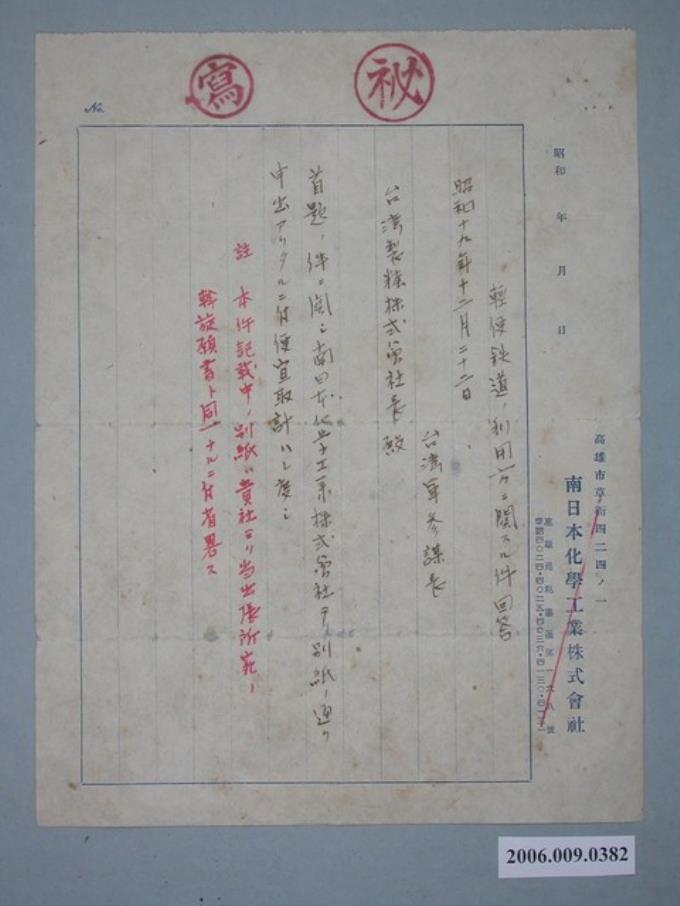 秘
寫
No.
昭和　年　月　日
高雄市草衙四二四ノ一
南日本化學工業株式會社
輕便鉄道ノ利用方ニ関スル件回答
昭和十九年十二月二十二日
台湾軍参謀長
台湾製糖株式会社長殿
首題ノ件ニ関シ南日本化学工業株式会社ヨリ別紙ノ通リ
申出アリタルニ付便宜取計ハレ度シ
註　本件記載中ノ別紙ハ貴社ヨリ当出張所宛ノ
斡旋願書ト同一ナルニ付省畧ス
2006.009.0382